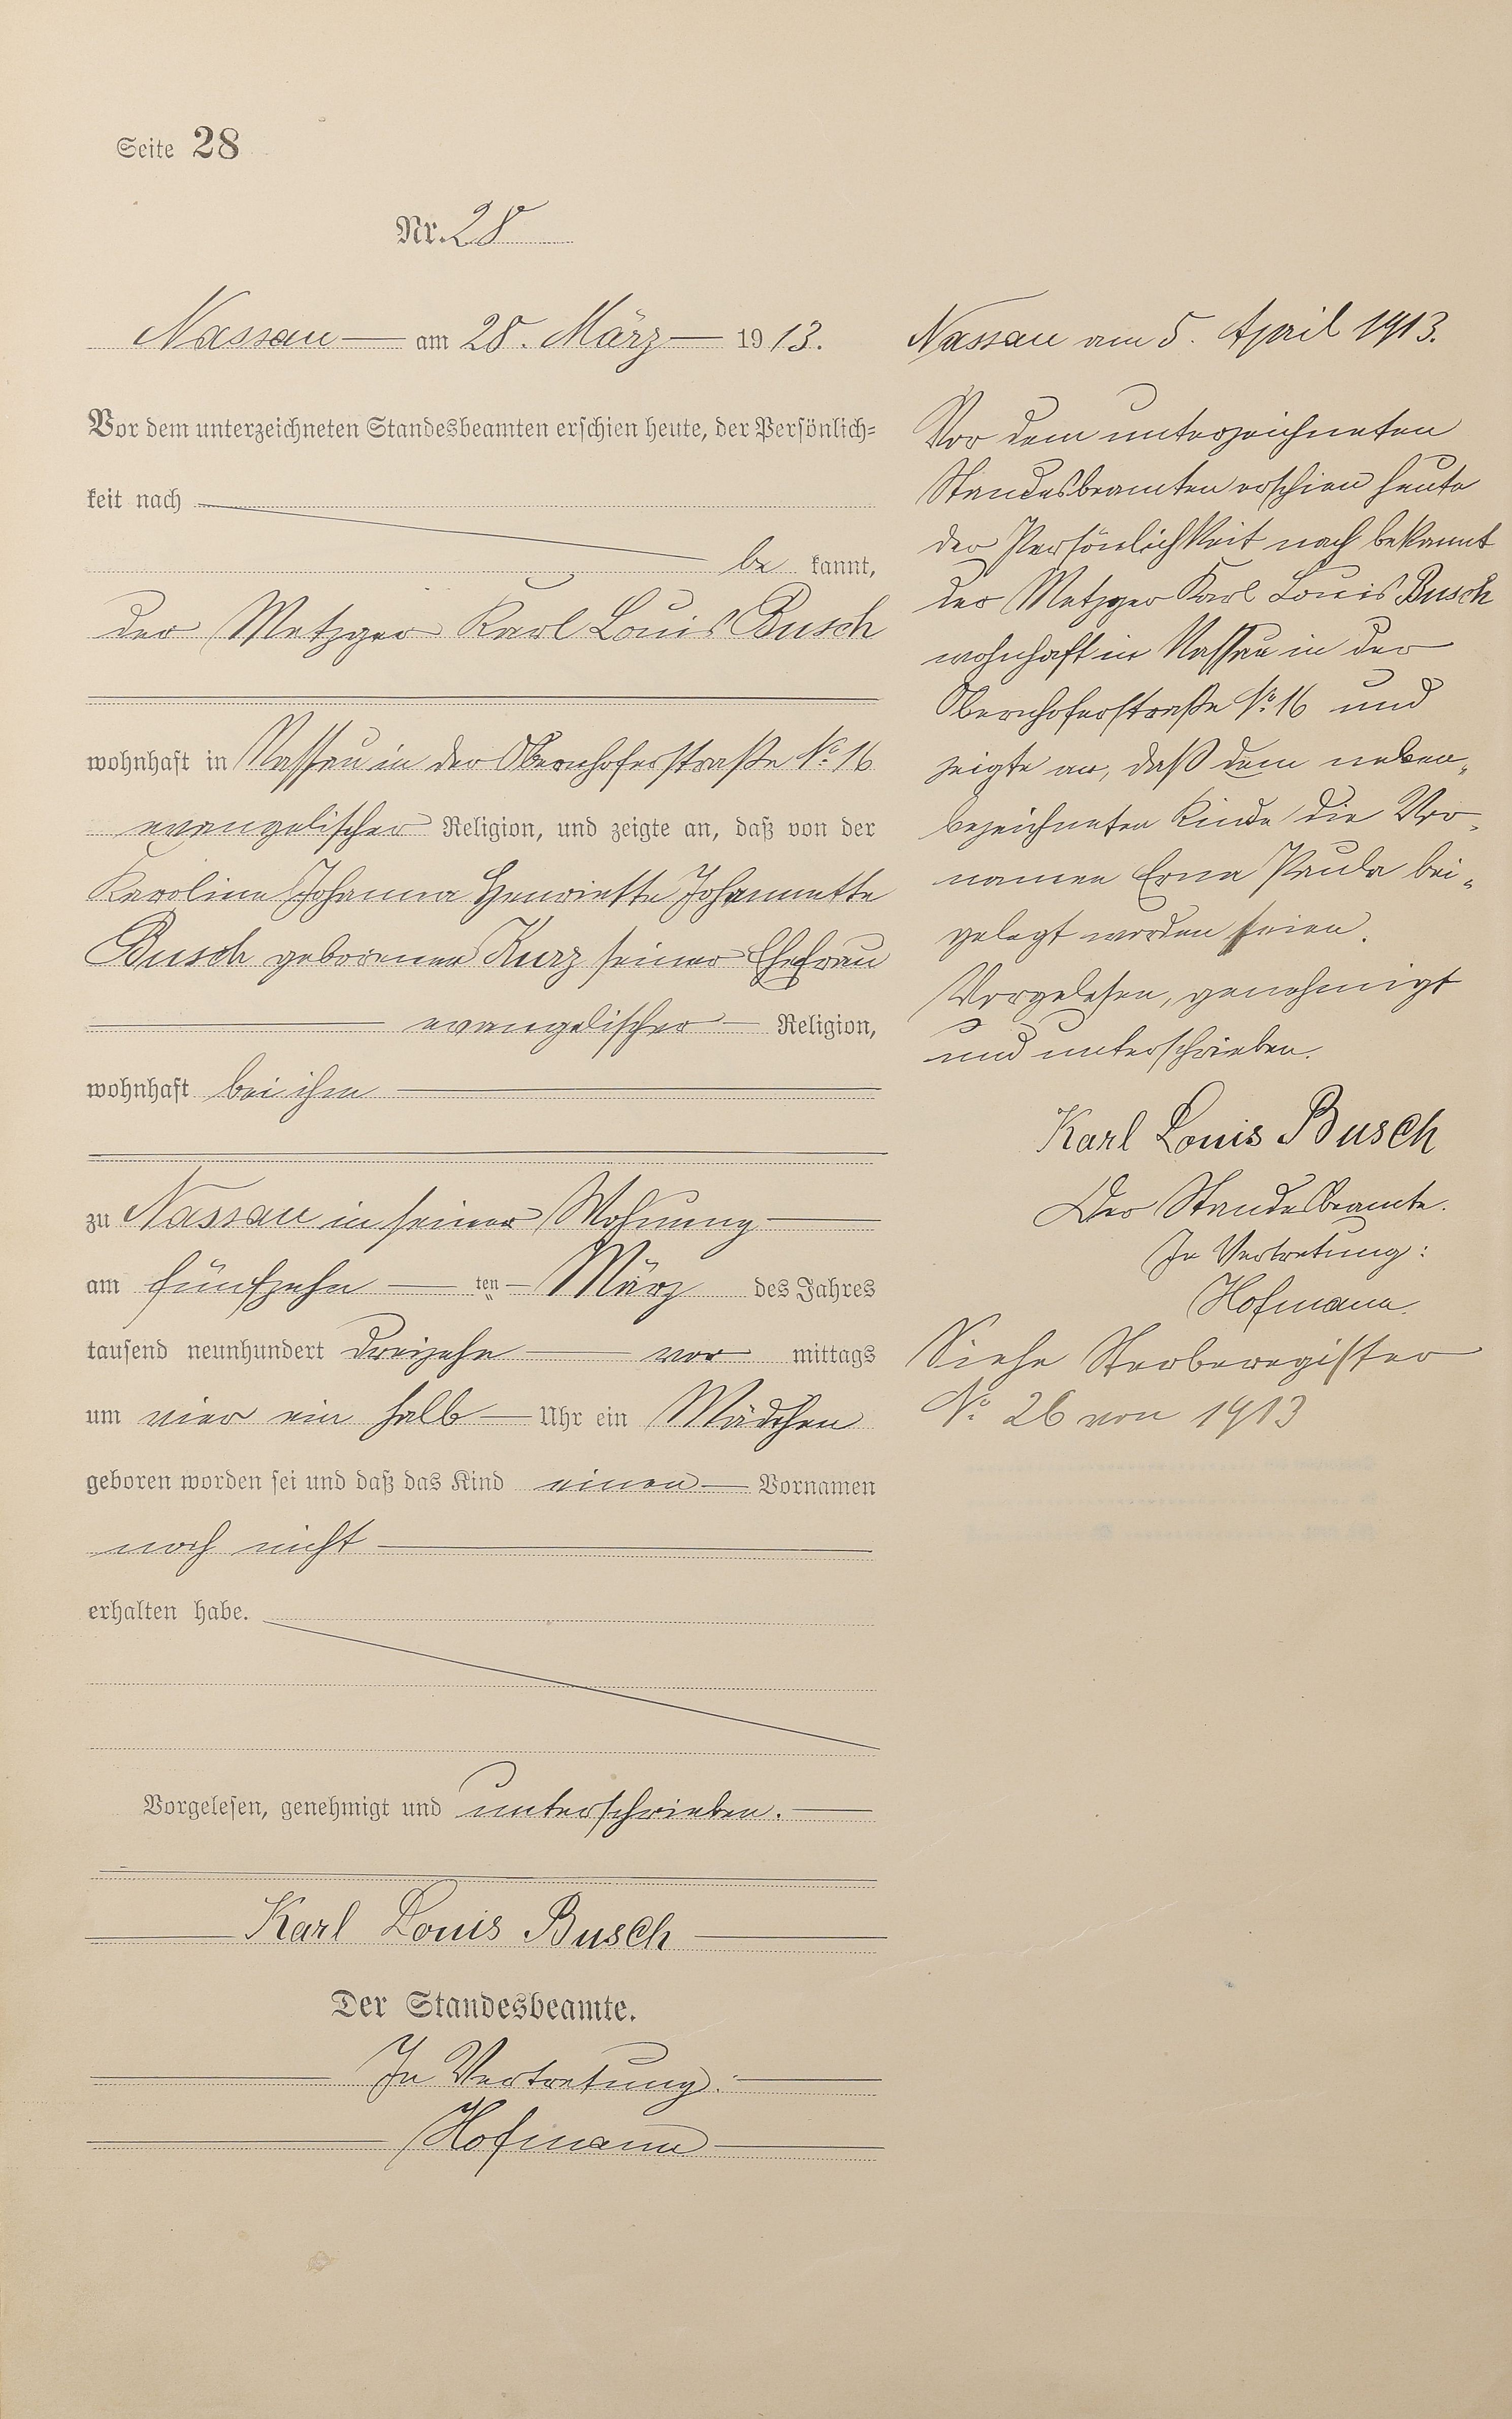 Seite 28
Nr. 28
Nassau am 28. März 1913.
Vor dem unterzeichneten Standesbeamten erschien heute, der Persönlich=
keit nach
be kannt,
der Metzger Karl Louis Busch
wohnhaft in Nassau in der Obernhoferstraße No. 16
evangelischer Religion, und zeigte an, daß von der
Karoline Johanna Henriette Johannette
Busch geborenen Kurz seiner Ehefrau
evangelischer Religion,
wohnhaft bei ihm
zu Nassau in seiner Wohnung
am fünfzehn ten März des Jahres
tausend neunhundert dreizehn vor mittags
um vier ein halb Uhr ein Mädchen
geboren worden sei und daß das Kind einen Vornamen
noch nicht
erhalten habe.
Vorgelesen, genehmigt und unterschrieben.
Karl Louis Busch
Der Standesbeamte.
In Vertretung:
Hofmann
Nassau am 5. April 1913.
Vor dem unterzeichneten
Standesbeamten erschien heute
der Persönlichkeit nach bekannt
der Metzger Karl Louis Busch
wohnhaft in Nassau in der
Obernhoferstraße No. 16 und
zeigte an, daß dem neben„
bezeichneten Kinde die Vor„
namen Erna Paula bei„
gelegt worden seien.
Vorgelesen, genehmigt
und unterschrieben.
Karl Louis Busch
Der Standesbeamte.
In Vertretung:
Hofmann.
Siehe Sterberegister
No. 26 von 1913